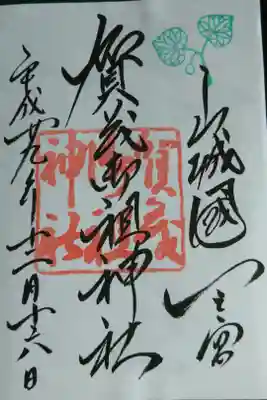 山城國一之宮
賀茂御祖神社
賀茂
御祖
神社
平成廿九年十二月
日